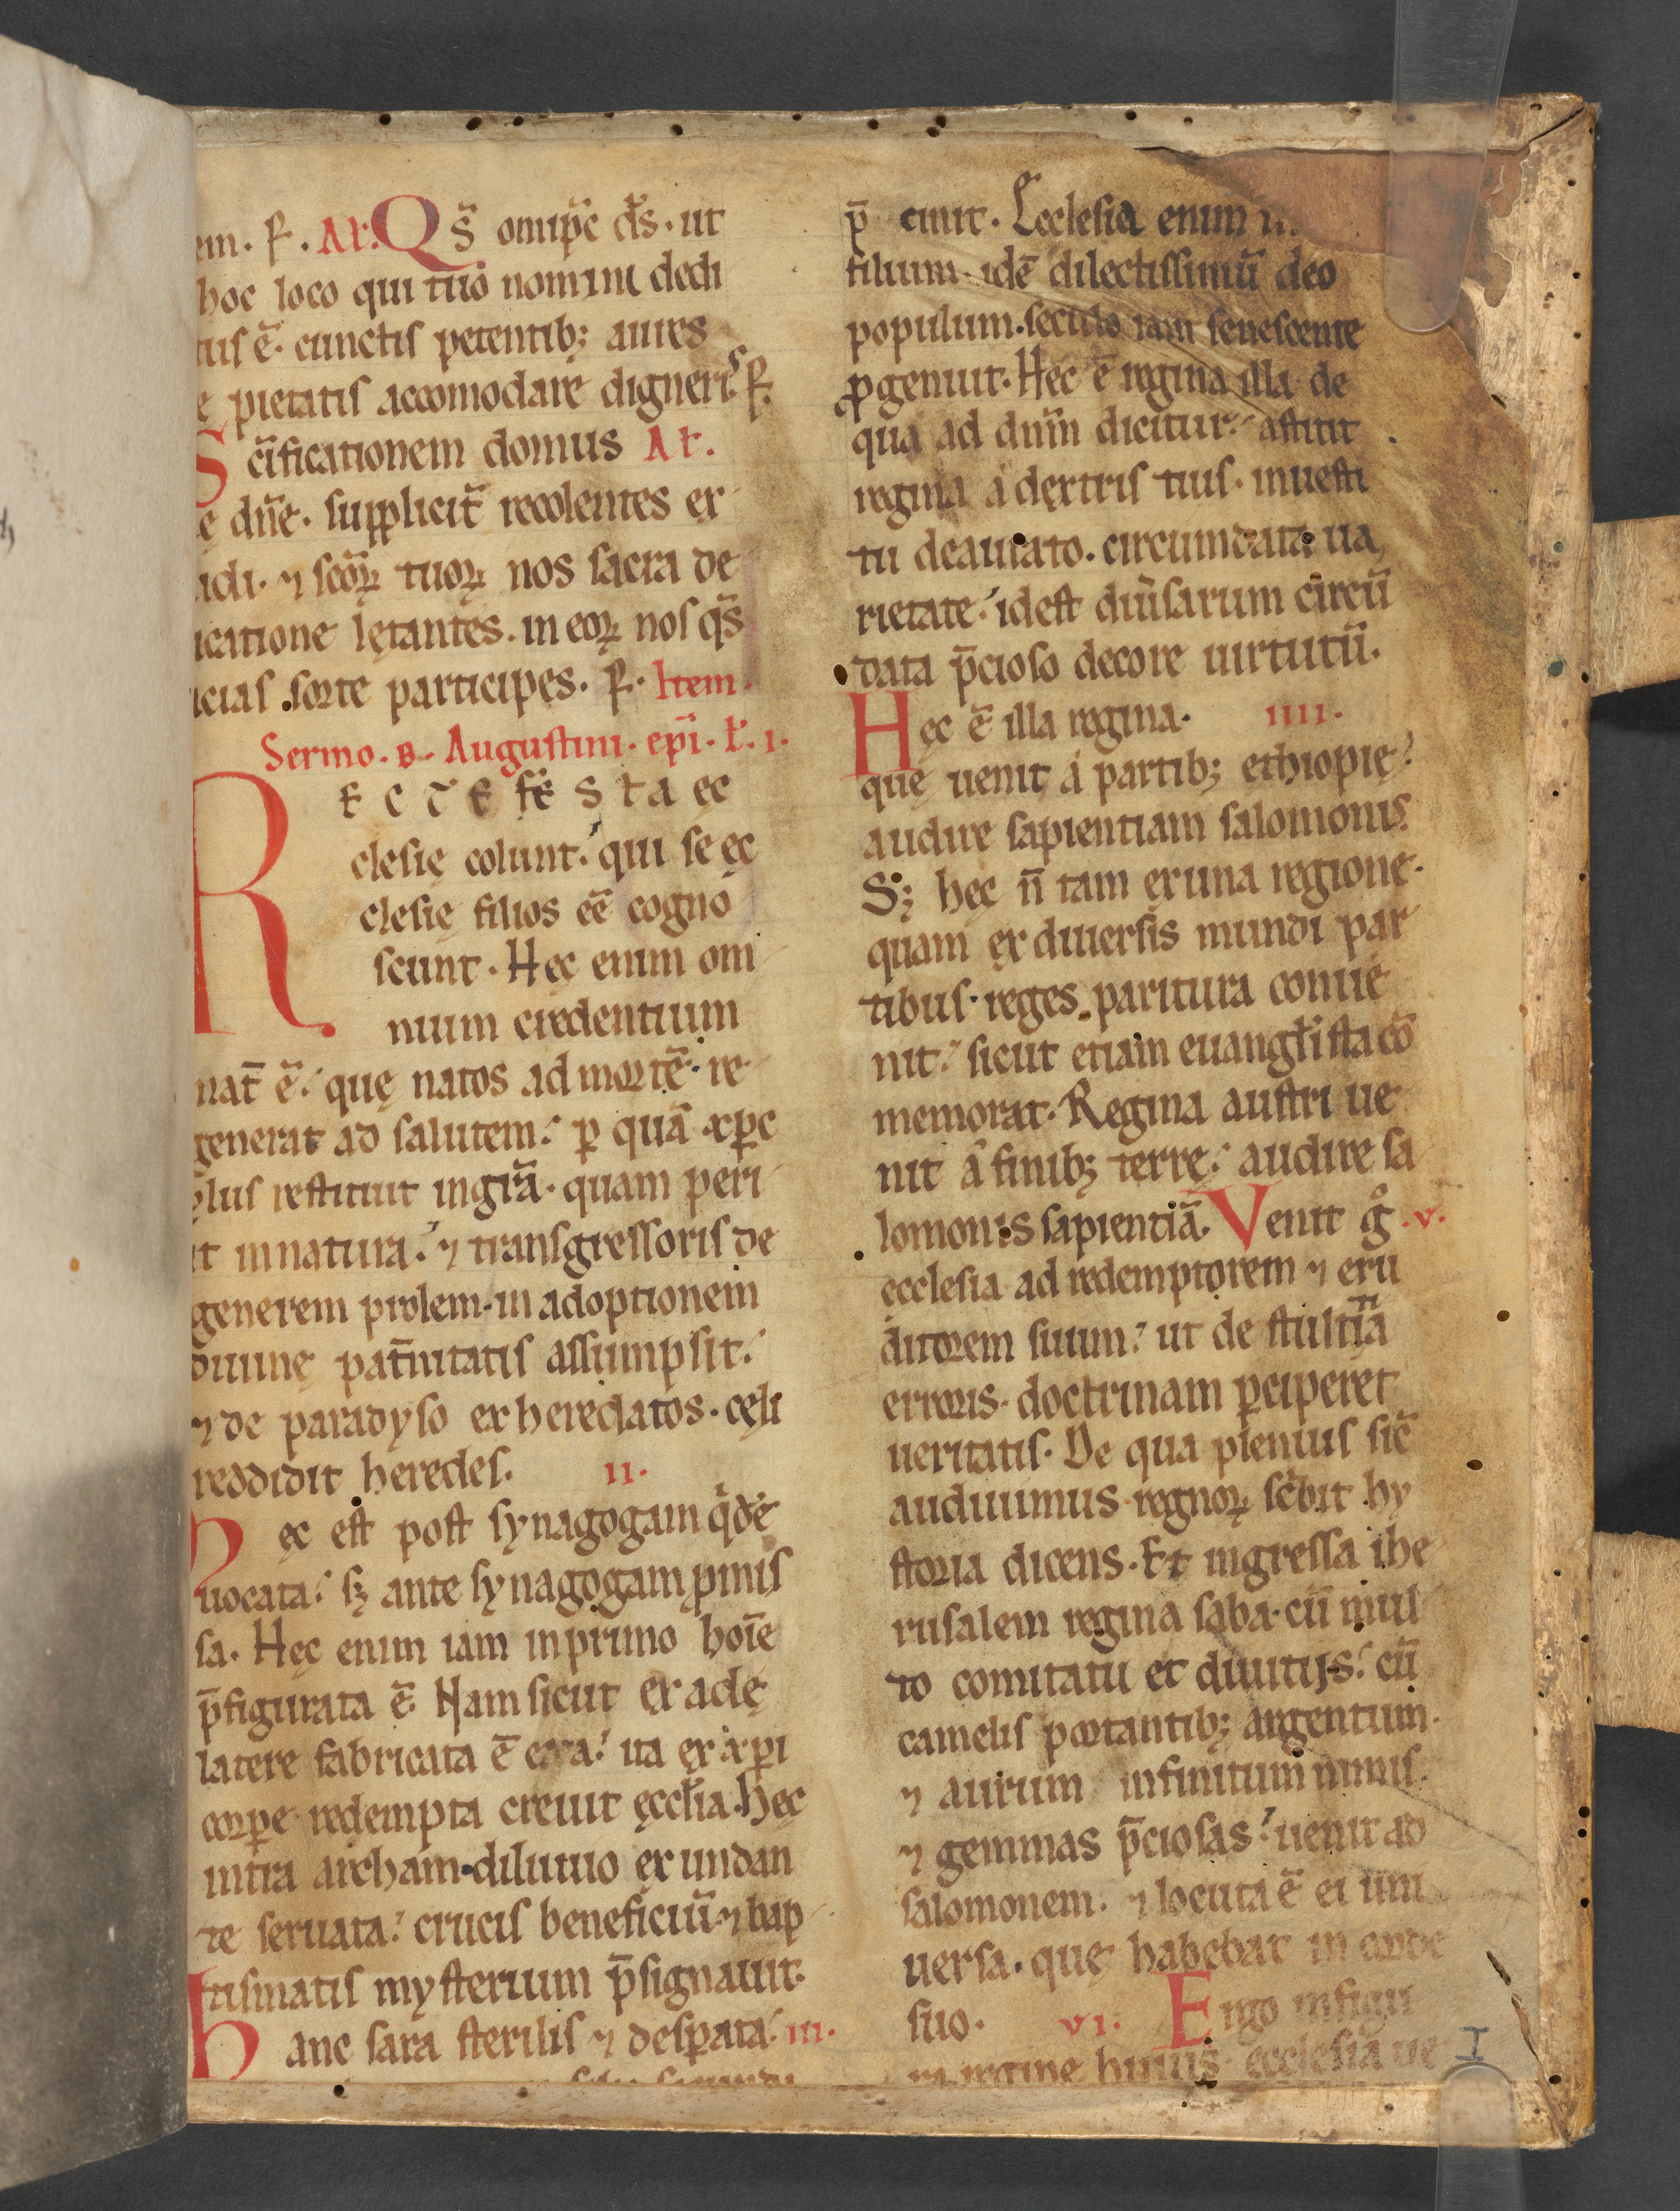 em. P. Al. Q s̄ omīpc d̄s. ut
hoc loco qui tuo nomini dedi
tus ē. cunctis petentib; aures
ę pietatis accomodare digneris P.
S c̄ificationem domus Al.
e dn̄e. supplicit̄ recolentes ex
udi. ⁊ scōꝝ tuoꝝ nos sacra de
icatione lętantes. in eoꝝ nos qs̄
icias sorte participes. P. Item.
Sermo. B. Augustini. ep̄i. l. i.
R E C T E FE S T A ec
clesię colunt. qui se ęc
clesię filios eē̄ cogno
scunt. Hęc enim om
nium credentium
mat̄ ē. quę natos ad mortē. re
generat ad salutem. ꝑ quā xp̄c
lus restituit in gr̄a. quam peri
it in natura. ⁊ transgressoris de
generem prolem. in adoptionem
diuinę pat̄nitatis assumpsit.
⁊ de paradyso exheredatos. cęli
reddidit heredes. ii.
H ęc est post synagogam qͥdē
uocata. sꝫ ante synagogam ꝓmis
sa. Hęc enim iam in primo hoīe
p̄figurata ē. Nam sicut ex adę
latere fabricata ē eua. ita ex xp̄i
corꝑe redempta creuit ęccl̄ia. Hęc
intra archam diluuio exundan
te seruata. crucis beneficiū ⁊ bap
tismatis mysterium p̄signauit.
H anc sara sterilis ⁊ desꝑata. iii.
p̄ cinit. Ecclesia enim
filium. idē dilectissimū deo
populum. seculo iam senescente
ꝓgenuit. Hęc ē regina illa de
qua ad dnm̄ dicitur. astitit
regina a dextris tuis. in uesti
tu deaurato. circumdata ua
rietate. idest diūsarum circū
data p̄cioso decore uirtutū.
H ęc ē illa regina. iiii.
quę uenit a partib; ethiopię.
audire sapientiam salomonis.
S; hęc n̄ tam ex una regione.
quam ex diuersis mundi par
tibus. reges paritura conue
nit. sicut etiam euangl̄ista cō
memorat. Regina austri ue
nit a finib; terrę. audire sa
lomonis sapientiā. Venit gͦ .v.
ecclesia ad redemptorem ⁊ eru
ditorem suum. ut de stultitiā
erroris. doctrinam ꝑciperet
ueritatis. De qua plenius sic̄
audiuimus regnoꝝ sc̄bit hy
storia dicens. Et ingressa ihe
rusalem regina saba. cū mul
to comitatu et diuitijs. cū
camelis portantib; argentum.
⁊ aurum infinitum nimis.
⁊ gemmas p̄ciosas. uenit ad
salomonem. ⁊ locuta ē ei uni
uersa. quę habebat in corde
suo. vi. Ergo in figu
ra reginę huius. ecclesia ue
I